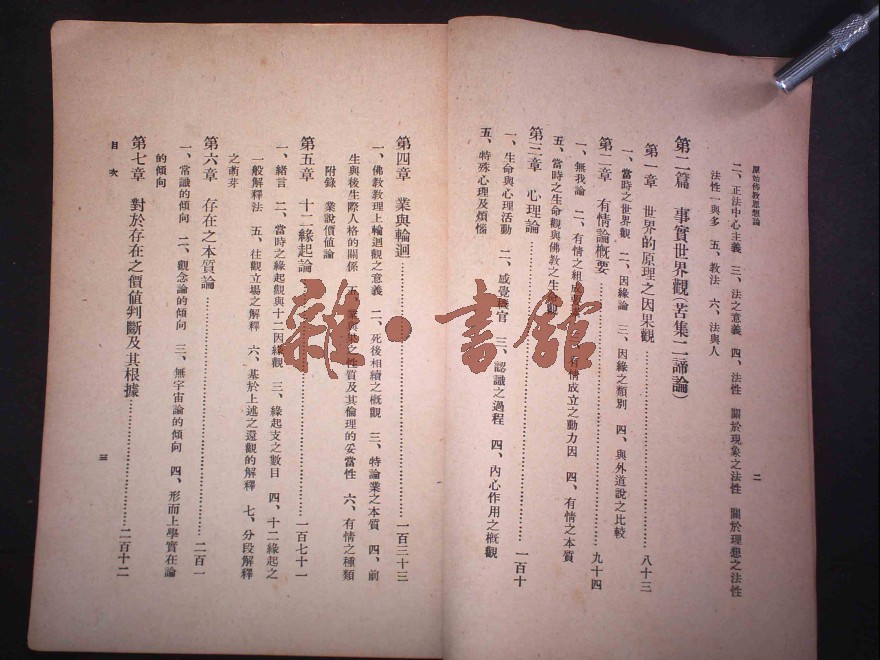 原始佛教思想論
二
二、正法中心主義　三、法之意義　四、法性　關於現象之法性　關於理想之法性
法性一與多　五、教法　六、法與人
第二篇　事實世界觀(苦集二諦論)
第一章　世界的原理之因果觀……八十三
一、當時之世界觀　二、因緣論　三、因緣之類別　四、與外道說之比較
第二章　有情論概要……九十四
一、無我論　二、有情之組成　有情成立之動力因　四、有情之本質
五、當時之生命觀與佛教之生命觀
第三章　心理論……一百十
一、生命與心理活動　二、感覺機官　三、認識之過程　四、內心作用之概觀
五、特殊心理及煩惱
第四章　業與輪迴……一百三十三
一、佛教教理上輪迴觀之意義　二、死後相續之概觀　三、特論業之本質　四、前
生與後生際人格的關係　五、業與果之性質及其倫理的妥當性　六、有情之種類
附錄　業說價值論
第五章　十二緣起論……一百七十一
一、緒言　二、當時之緣起觀與十二因緣觀　三、緣起支之數目　四、十二緣起之
一般解釋法　五、往觀立場之解釋　六、基於上述之還觀的解釋　七、分段解釋
之萌芽
第六章　存在之本質論……二百一
一、常識的傾向　二、觀念論的傾向　三、無宇宙論的傾向　四、形而上學實在論
的傾向
第七章　對於存在之價値判斷及其根據……二百十二
目次
三
雜·書館